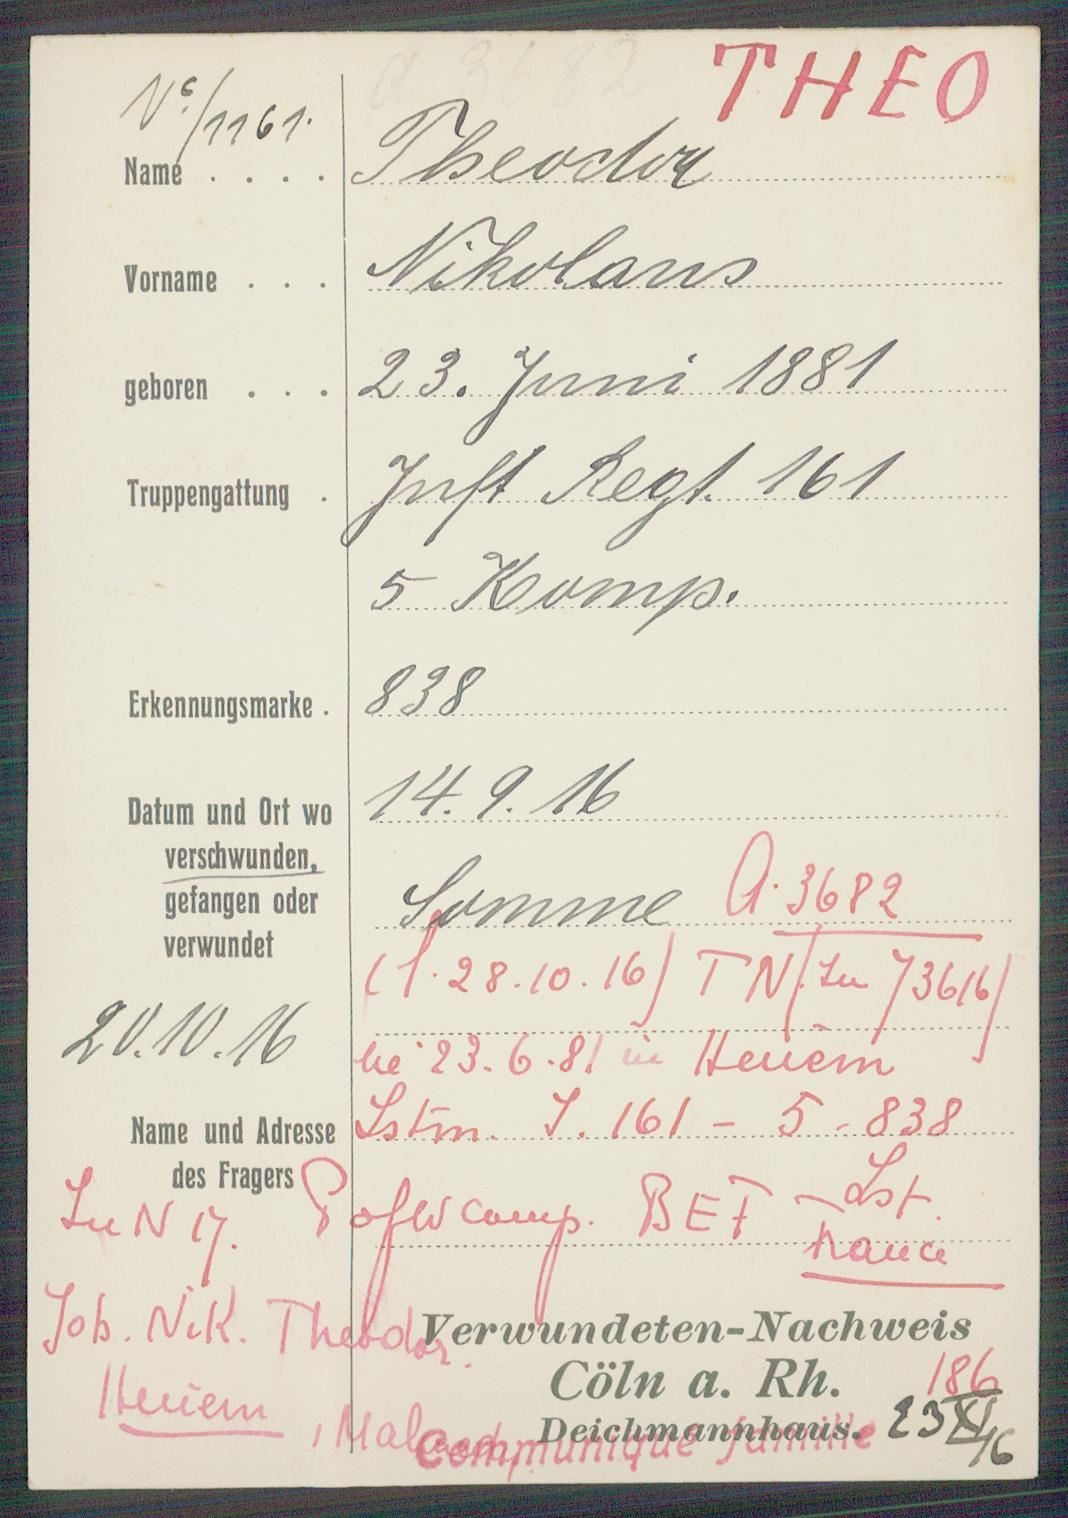 THEO
Nº/1161.
Name . . . . Theodor
Vorname . . . Nikolaus
geboren . . . 23. Juni 1881
Truppengattung . Inft Regt. 161
5 Komp.
Erkennungsmarke . 838
Datum und Ort wo 14. 9. 16
verschwunden,
gefangen oder Somme A. 3682
verwundet
( 28.10.16) TN
20.10.16
né 23.6.81 in Heuem
Name und Adresse Lstm. I. 161 - 5 - 838
des Fragers
Lst.
BEF France
Joh. Nik. Theodor.
Heuem
, Malmed.
Verwundeten-Nachweis
Cöln a. Rh.
Deichmannhaus.
186
23 XI/16
Communiqué famille